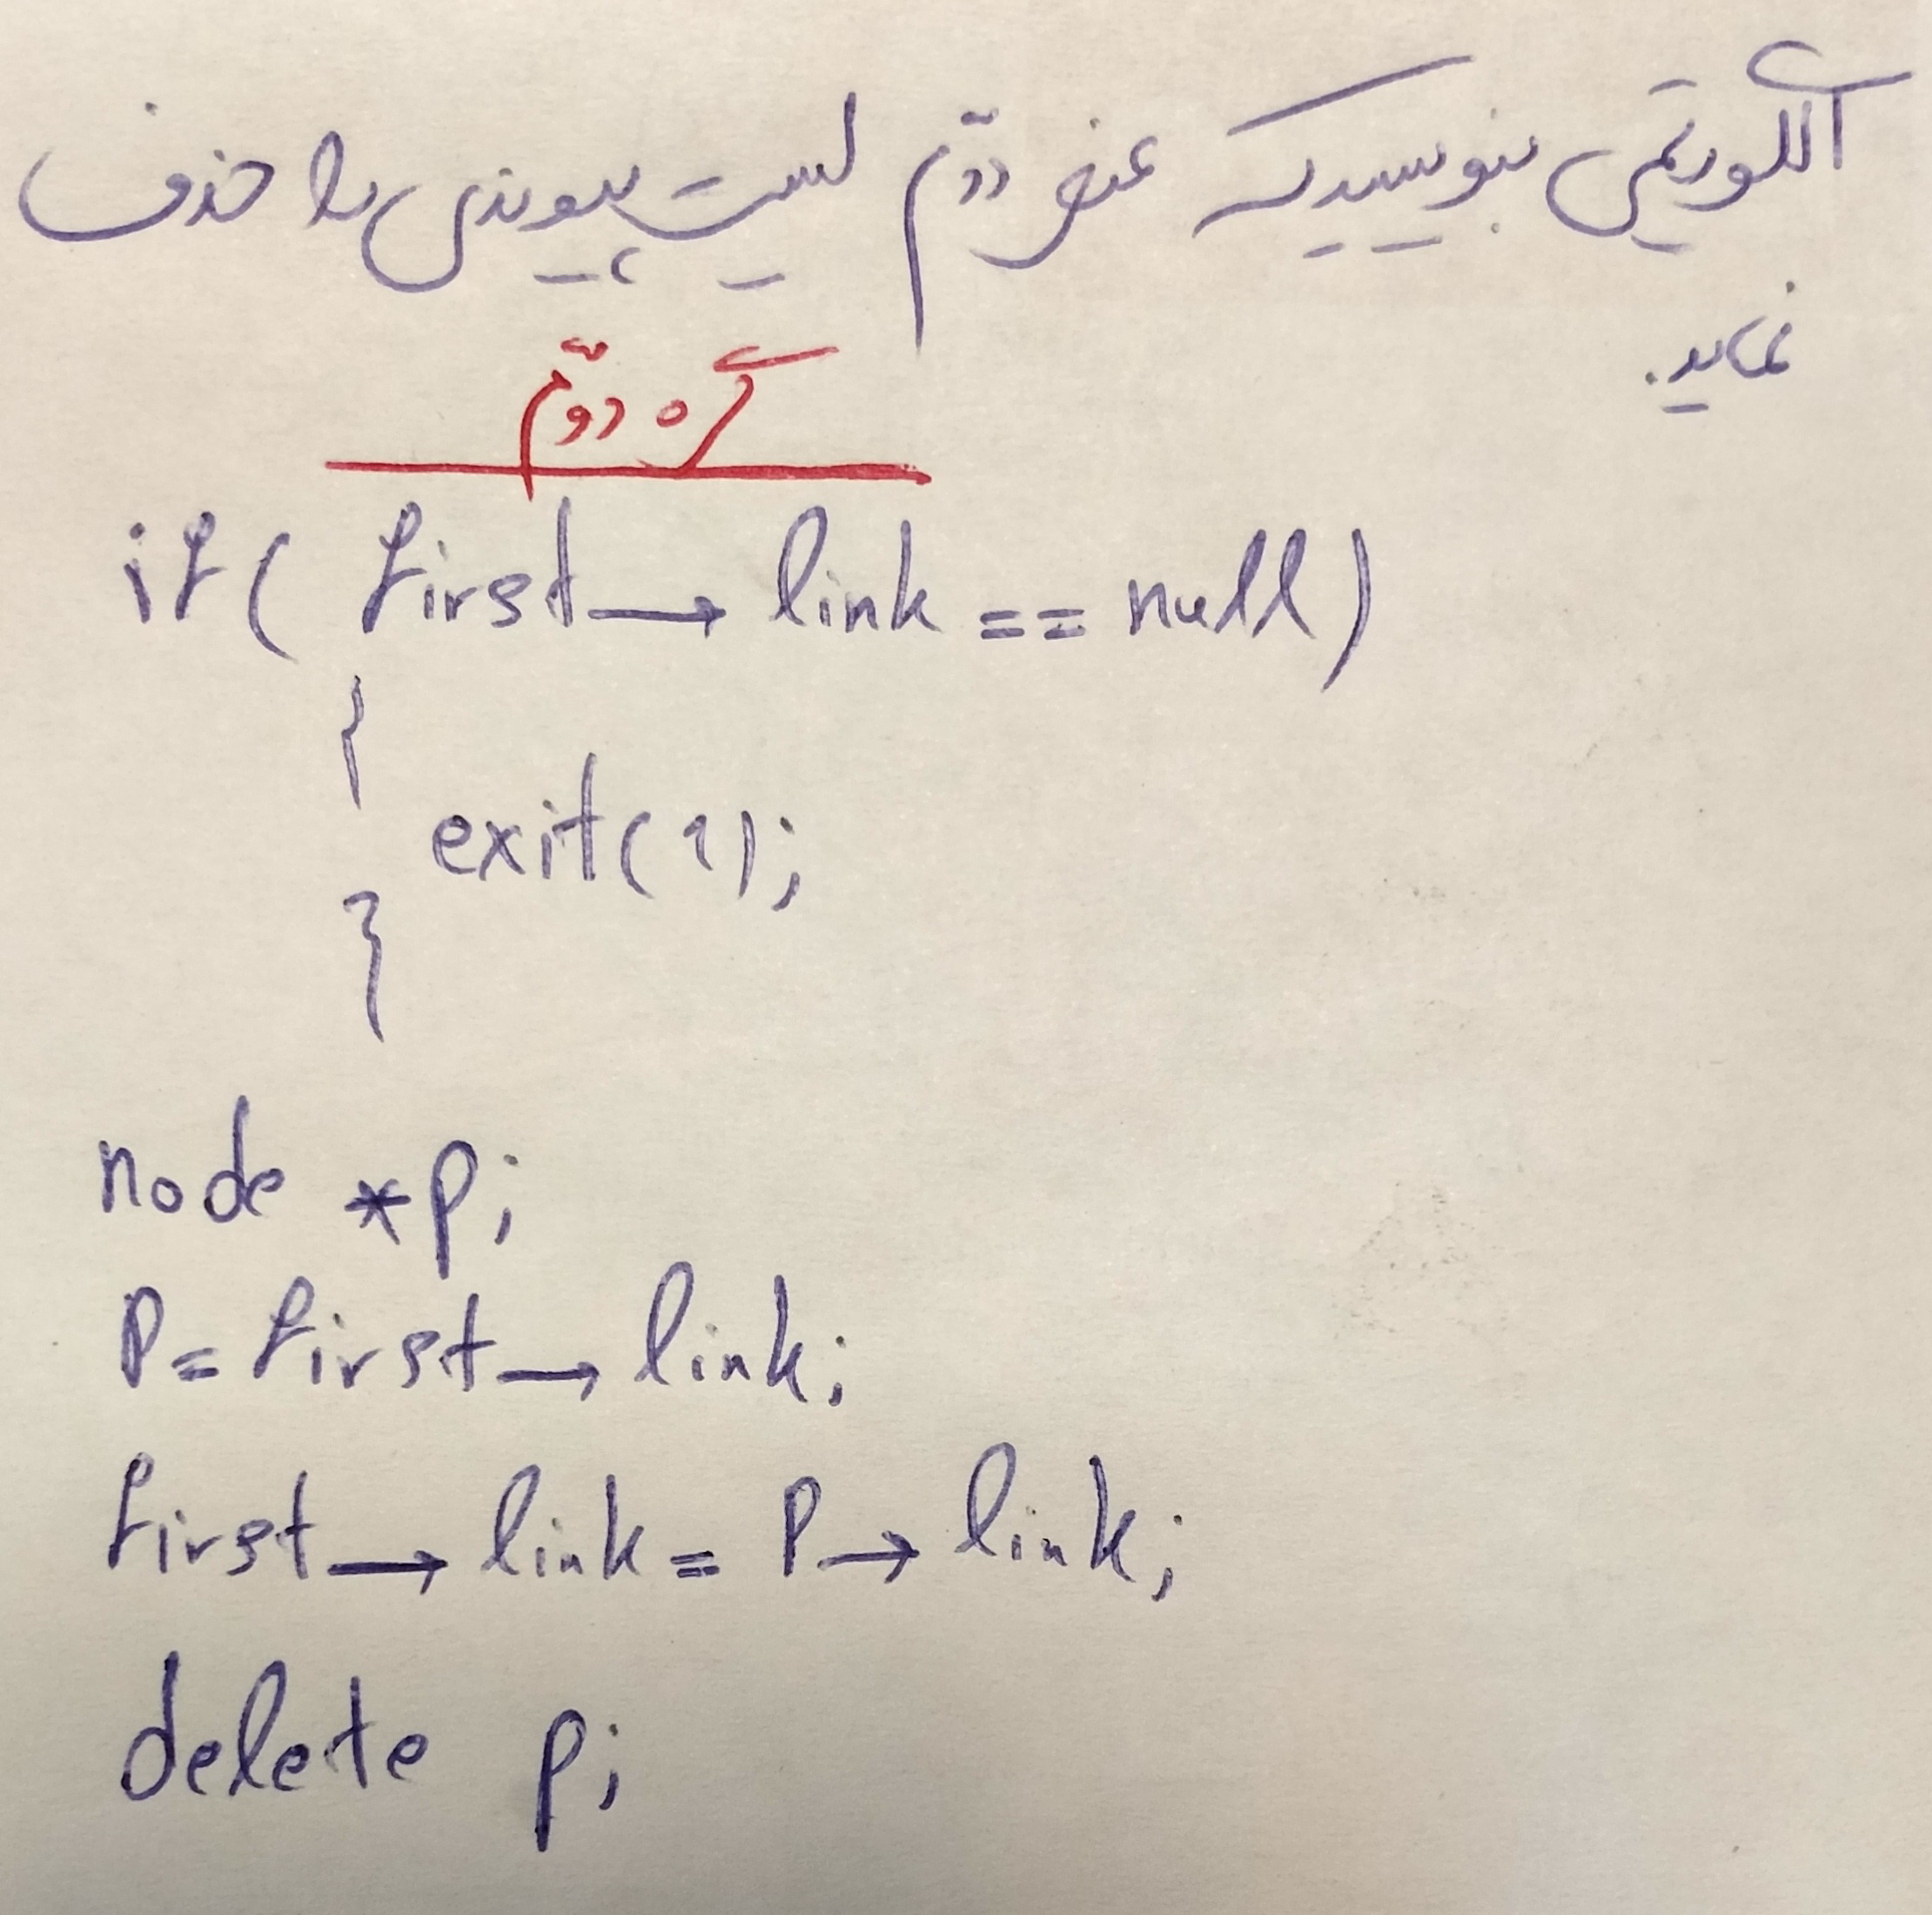 الگوریتمی بنویسید که عنصر دوّم لیست پیوندی را حذف
نماید.
گره دوّم
if( first→ link == null)
{
exit(1);
}
node *p;
P= first→ link;
first→ link = P→ link;
delete p;